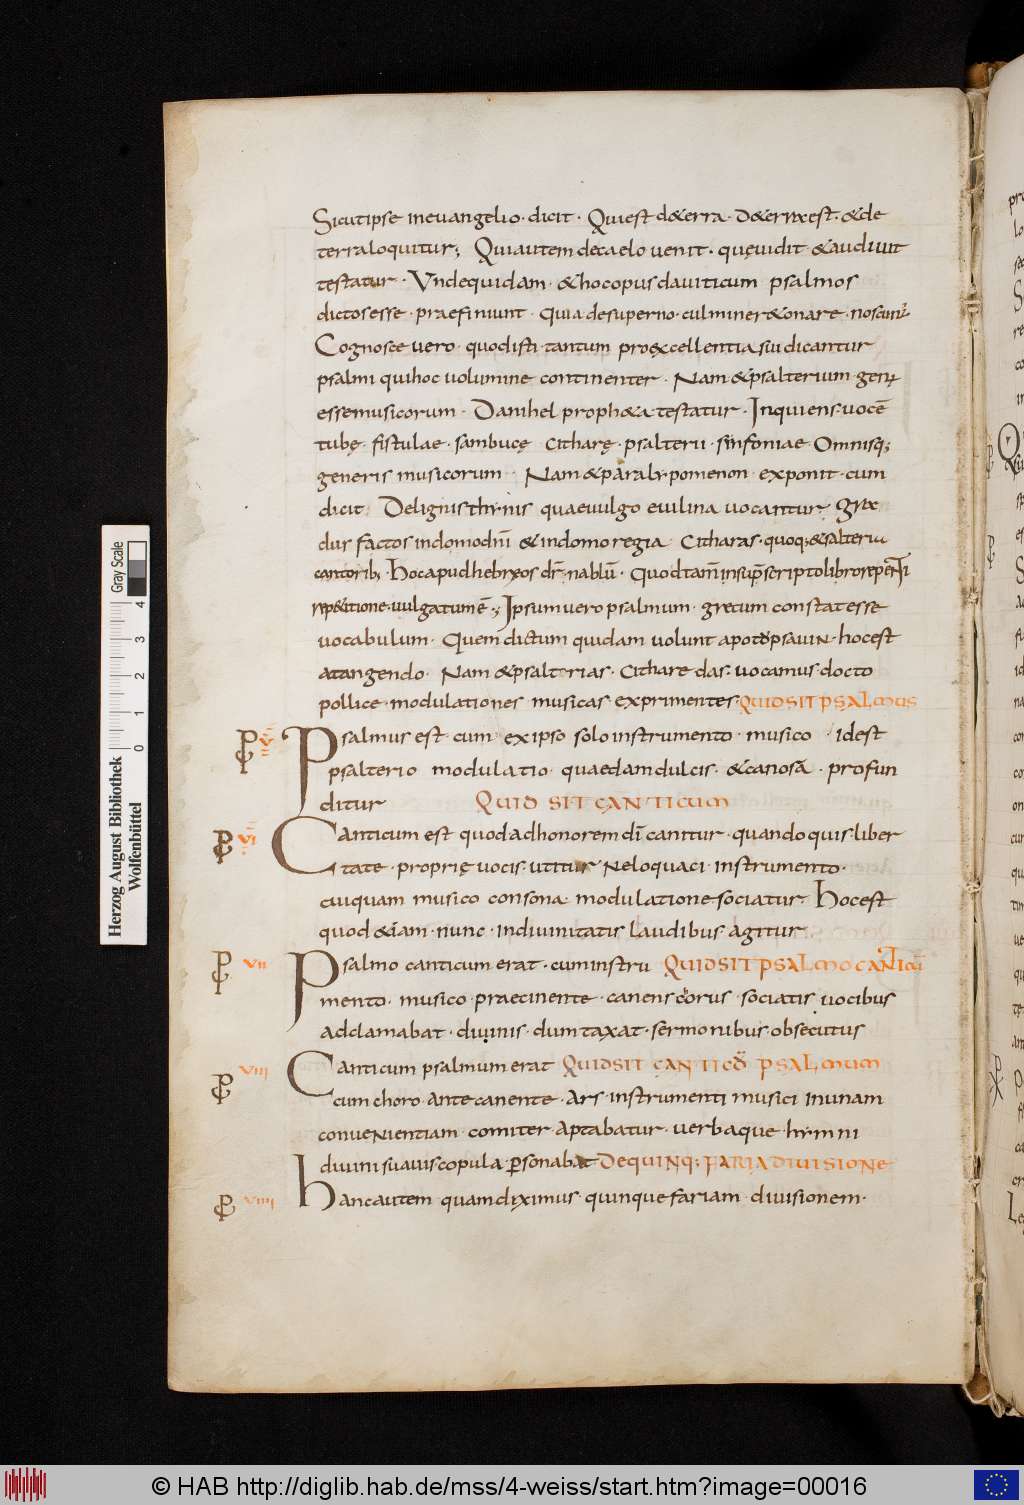 Sicutipse ineuangelio · dicit · Quiest d&erra · D&erraest · &de
terraloquitur; Quiautem decaelo uenit · quęuidit · &audiuit
testatur · Vndequidam · &hocopus dauiticum · psalmos
dictosesse · praefiniunt · Quia desuperno · culminer&onare · noscunt᷑
Cognosce uero · quodisti · tantum proexcellentia sui dicantur
psalmi quihoc uolumine continenter · Nam &psalterium · genꝝ
essemusicorum · Danihel proph&a testatur · Inquiens · uocē
tubę · fistulae · sambucę Citharę · psalterii · sinfoniae Omnisq;
generis musicorum · Nam &paralypomenon · exponit · cum
dicit Delignis thynis quaeuulgo euilina uocantur gra
dus factos indomo dn̄i &indomo regia Citharas · quoq; &salteria
cantorib; · hocapud hebręos dr̄ · nablū · Quodtam̄ insup̄scripto libro reperTi
rep&itione · uulgatum ē ·; Ipsum uero psalmum · grecum constat esse
uocabulum · Quem dictum quidam uolunt apotoỹpsauin · hocest
atangendo · Nam &psalterias · Citharedas · uocamus docto
pollice · modulationes musicas exprimentes · QUIDSIT PSALMUS
℟ V Psalmus est · cum ex ipso solo instrumento · musico · idest
psalterio modulatio · quaedam dulcis · &canosā · profun
ditur QUID SIT CANTICUM
VI Canticum est quodadhonorem dī canitur · quando quis · liber
tate · proprię uocis · utitur Neloquaci · instrumento ·
cuiquam musico consona modulatione sociatur · hocest
quod &iam · nunc · indiuinitatis laudibus agitur
VII Psalmo canticum erat · cum instru QUIDSIT PSALMOCANTICū
mento · musico · praecinente · canens corus · sociatis uocibus
adclamabat · diuinis · dum taxat · sermonibus · obsecutus
VIII Canticum psalmum erat QUIDSIT CANTICO PSALMUM
cum choro · ante canente · Ars · instrumenti musici Inunam
conueNientiam · comiter · Aptabatur · uerbaque · hymni
diuini suauis copula · ꝑsonabat DEQUINQ; FARIA DIUISIONE
VIIII hancautem quam diximus · quinquefariam · diuisionem ·
Herzog August Bibliothek
Wolfenbüttel
Gray Scale
0 1 2 3 4
© HAB http://diglib.hab.de/mss/4-weiss/start.htm?image=00016